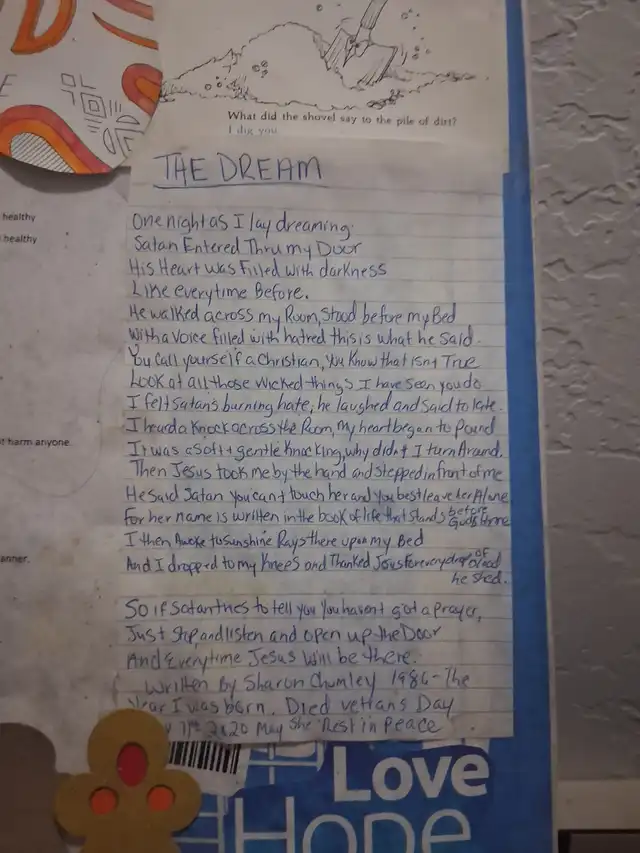 What did the shovel say to the pile of dirt?
I dig you
THE DREAM
One night as I lay dreaming.
Satan Entered Thru my Door
His Heart was Filled with darkness
Like everytime Before.
He walked across my Room, Stood before my Bed
With a voice filled with hatred this is what he Said.
You call yourself a Christian, You Know that isnt True
Look at all those wicked things I have Seen you do
I felt Satan's burning hate, he laughed and said to late.
I heard a Knock across the Room, my heart began to Pound
It was a Soft + gentle Knocking, why didn't I turn Around.
Then Jesus took me by the hand and stepped in front of me
He Said Satan you can't touch her and you best leave her Alone
For her name is written in the book of life that Stands before Gods throne
I then Awoke to Sunshine Rays there upon my Bed
And I dropped to my Knees and Thanked Jesus for every drop of blood
he shed.
So if Satan tries to tell you You haven't got a prayer,
Just Stop and listen and open up the Door
And Everytime Jesus Will be there.
Written By Sharon Chumley 1986 - The
Year I was born. Died vetrans Day
11th 2020 May She Rest in Peace
healthy
healthy
harm anyone.
anner.
Love
Hope